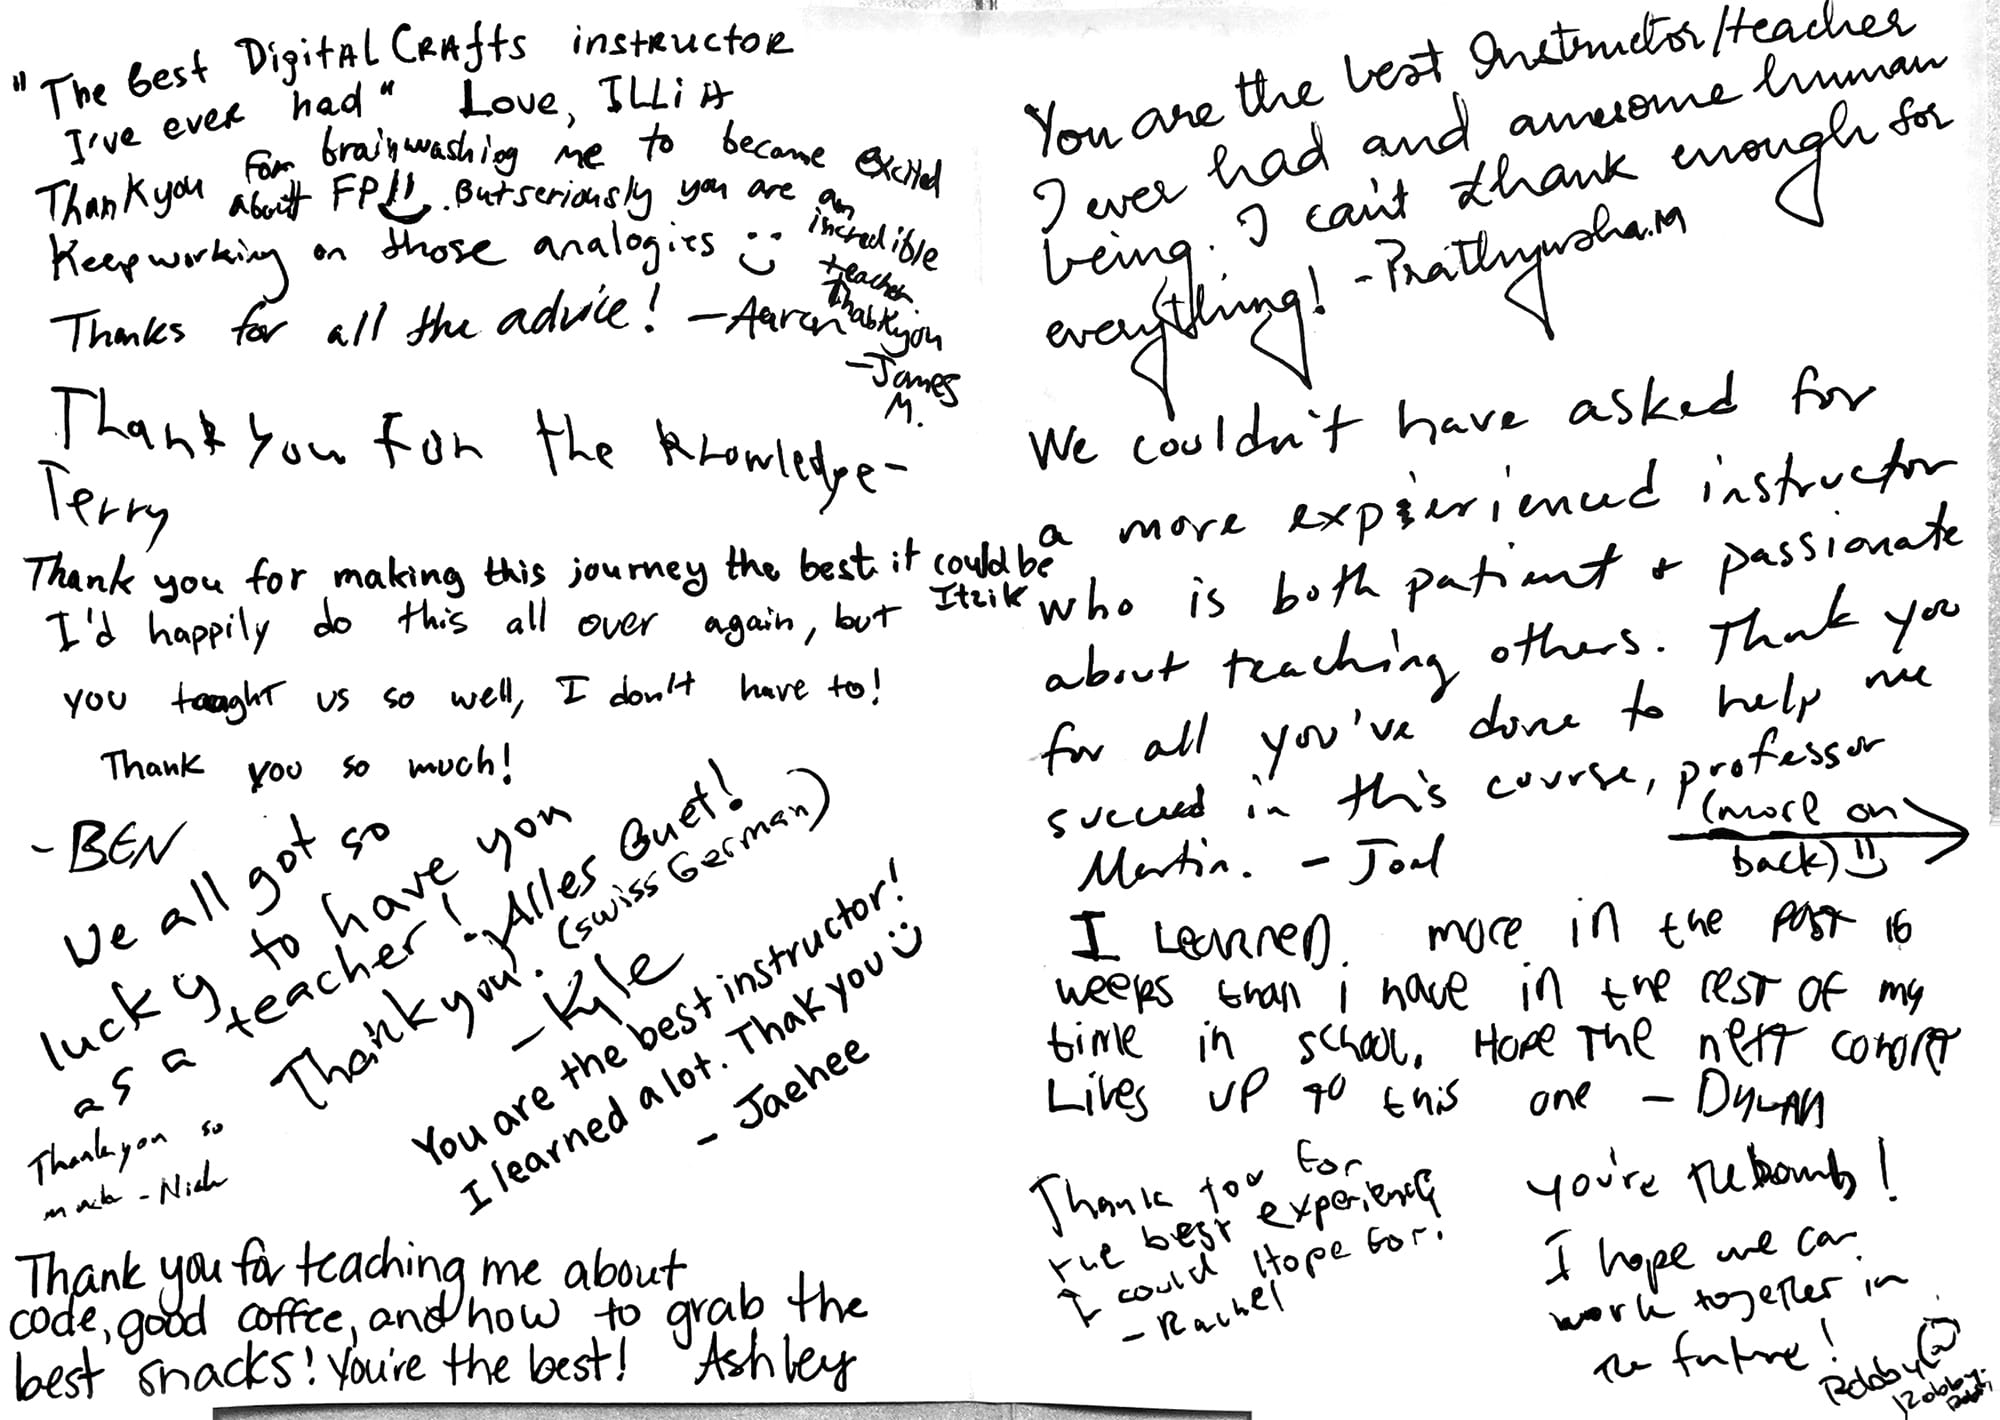 "The best DigitalCrafts instructor
I've ever had" Love, ILLiA
Thank you for brainwashing me to become excited
about FP!! But seriously you are an
incredible
teacher.
Thabk you
-James
M.
Keep working on those analogies
Thanks for all the advice! -Aaron
Thank you for the knowledge-
Terry
Thank you for making this journey the best it could be
Itzik
I'd happily do this all over again, but
you taught us so well, I don't have to!
Thank you so much!
-BEN
We all got so
lucky to have you
as a teacher! Alles Guet!
(Swiss German)
Thank you.
-Kyle
You are the best instructor!
I learned a lot. Thak you
- Jaehee
Thank you so
much - Nick
Thank you for teaching me about
code, good coffee, and how to grab the
best snacks! You're the best! Ashley
You are the best Instructor/teacher
I ever had and awesome human
being. I can't thank enough for
everything! - Prathyusha.M
We couldn't have asked for
a more experienced instructor
who is both patient + passionate
about teaching others. Thank you
for all you've done to help me
succeed in this course, professor
Martin. - Joel
(more on
back)
I Learned more in the past 16
weeks than i have in the rest of my
time in school. Hope the next cohort
Lives up to this one - Dylan
Thank you for
the best experience
I could Hope for.
- Rachel
you're the bomb!
I hope we can
work together in
the future!
Robby
Robby